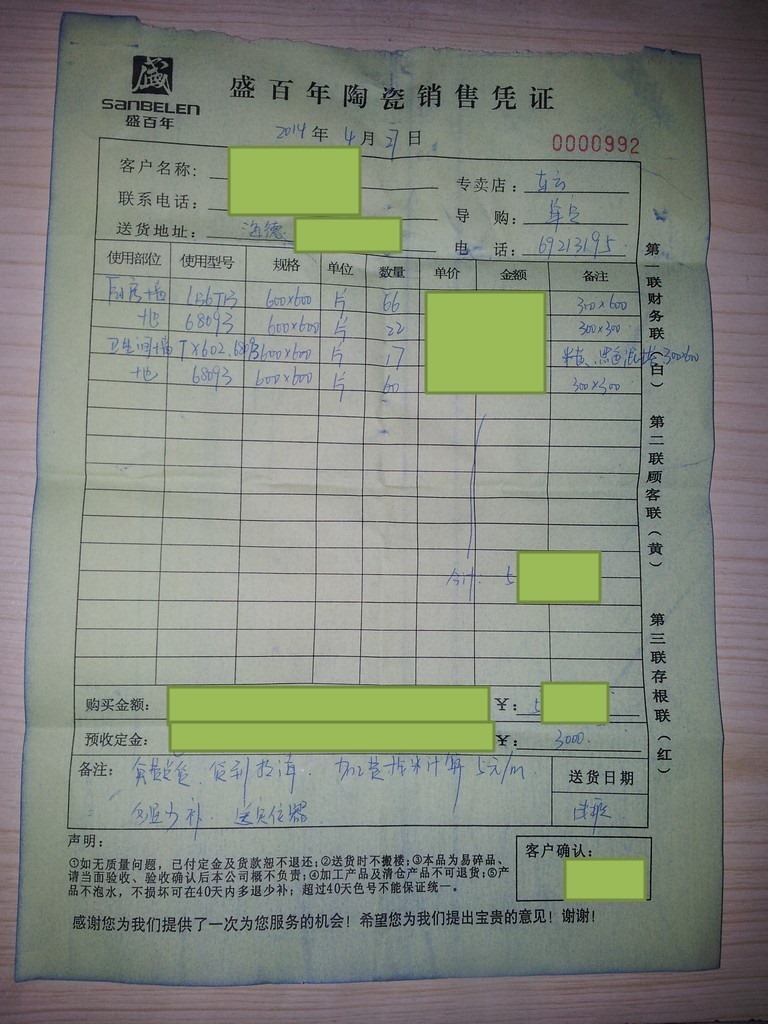 盛
SANBELEN
盛百年
盛百年陶瓷销售凭证
2014年4月27日
0000992
客户名称:
联系电话:
送货地址: 海德
专卖店:
导 购:
电 话: 69213195
使用部位 使用型号 规格 单位 数量 单价 金额 备注
厨房墙 600x600 片 66 300x600
地 68093 600x600 片 22 300x300
卫生间墙 TX602.68093 600x600 片 17 300x600
地 68093 600x600 片 60 300x300
合计: 5
购买金额: ¥: 5
预收定金: ¥: 3000
备注: 货到 加工费按米计算 5元/m
多退少补.
送货日期
客户确认:
声明:
①如无质量问题,已付定金及货款恕不退还;②送货时不搬楼;③本品为易碎品、
请当面验收、验收确认后本公司概不负责;④加工产品及清仓产品不可退货;⑤产
品不泡水,不损坏可在40天内多退少补;超过40天色号不能保证统一。
感谢您为我们提供了一次为您服务的机会!希望您为我们提出宝贵的意见!谢谢!
第一联财务联(白)
第二联顾客联(黄)
第三联存根联(红)